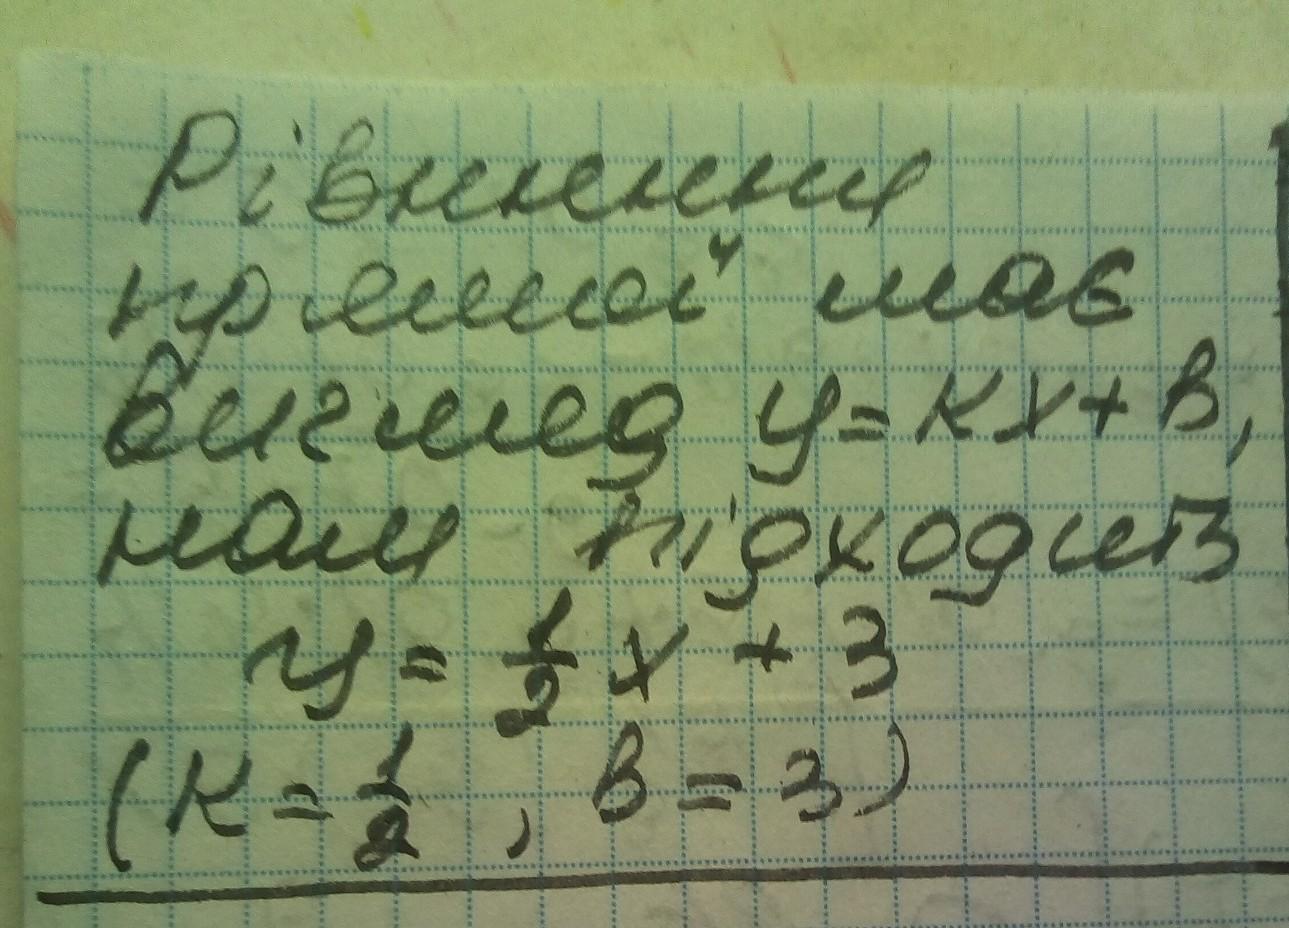 Рівняння
прямої має
вигляд y=kx+b,
нам підходить
y = 1/2 x + 3
(k = 1/2, b = 3)